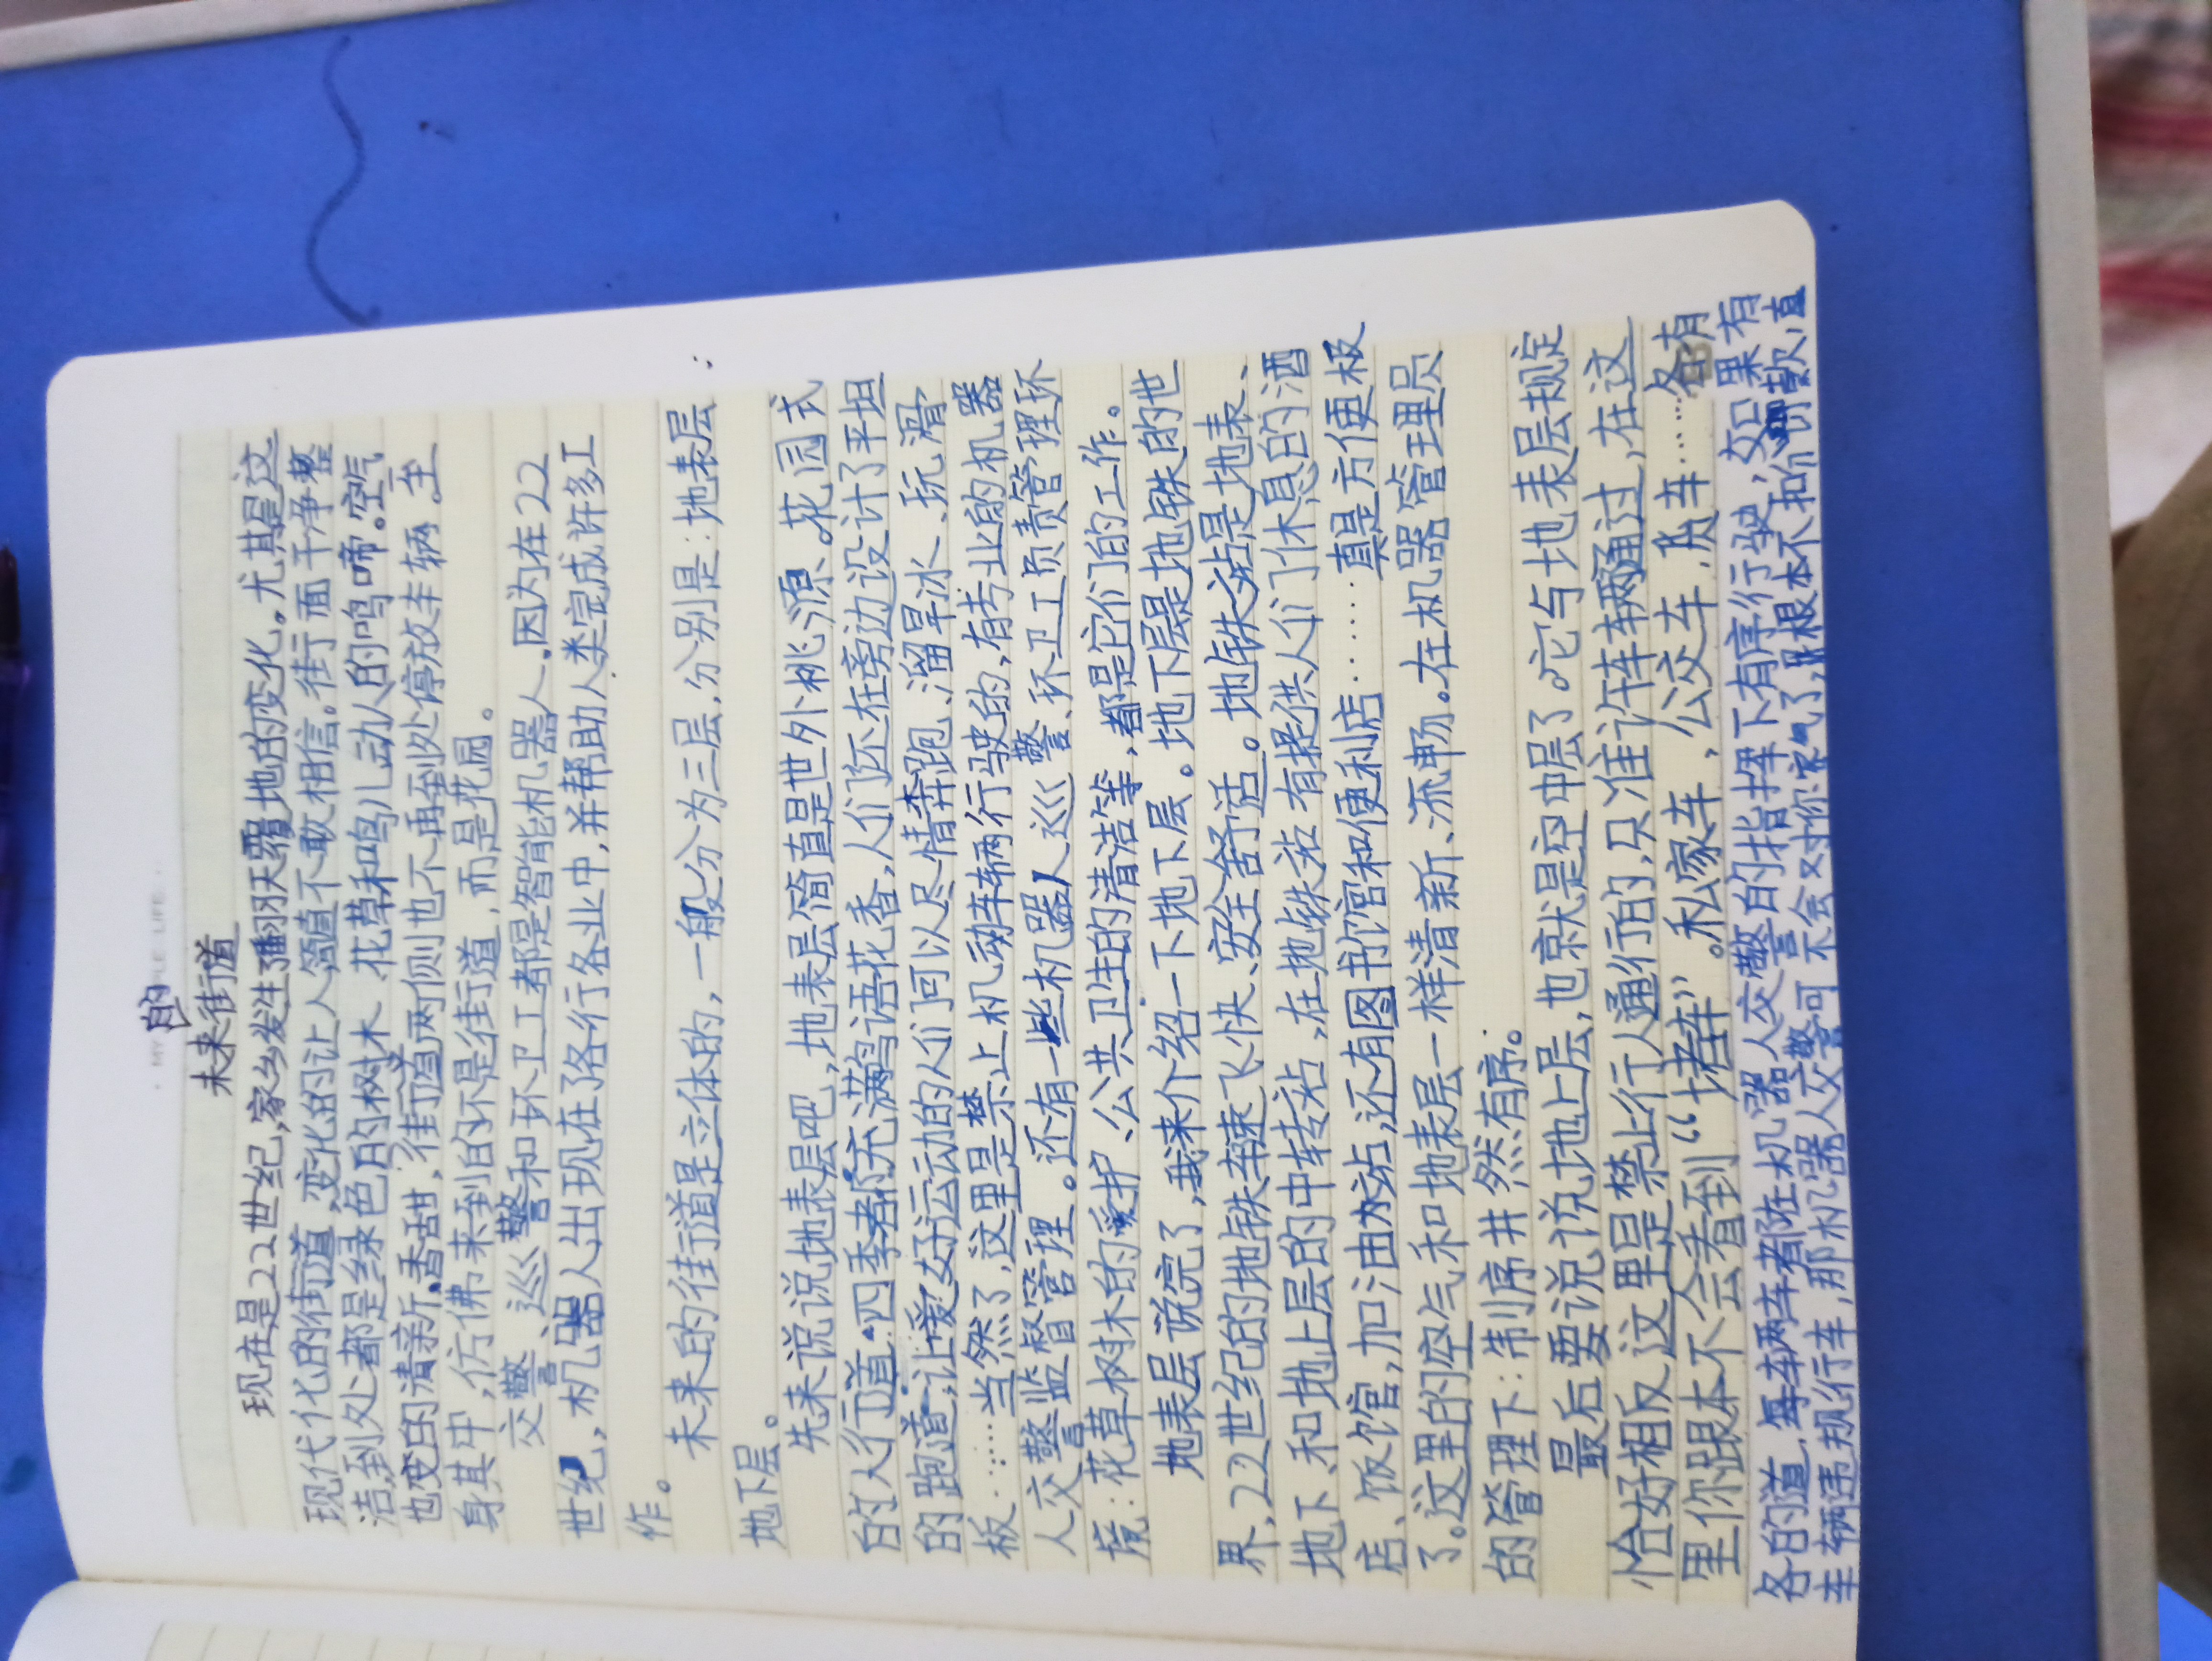 MY PLE LIFE
未来的街道
现在是22世纪,家乡发生了翻天覆地的变化。尤其是这
现代化的街道,变化的让人简直不敢相信。街行面干净整
洁,到处都是绿色的树木、花草和鸟儿动人的鸣啼。空气
也变的清新、香甜,街道两侧也不再到处停放车辆。至
身其中,仿佛来到的不是街道,而是花园。
交警、巡警和环卫工都是智能机器人,因为在22
世纪,机器人出现在了各行各业中,并帮助人类完成许多工
作。
未来的街道是立体的,一般分为三层,分别是:地表层
地下层。
先来说说地表层吧,地表层简直是世外桃源。花园式
的人行道,四季都充满鸟语花香,人们还在旁边设计了平坦
的跑道,让爱好运动的人们可以尽情奔跑、溜旱冰、玩滑
板……当然了,这里是禁止机动车辆行驶的,有专业的机器
人交警监督管理。还有一些机器人巡警、环卫工负责管理环
境:花草树木的爱护、公共卫生的清洁等,都是它们的工作。
地表层说完了,我来介绍一下地下层。地下层是地铁的世
界,22世纪的地铁车速飞快、安全舒适。地铁站是地表、
地下、和地上层的中转站,在地铁站有提供人们休息的酒
店、饭馆,加油站,还有图书馆和便利店……真是方便极
了。这里的空气和地表层一样清新、流畅。在机器管理员
的管理下:制序井然有序。
最后要说说地上层,也就是空中层了。它与地表层规定
恰好相反,这里是禁止行人通行的,只准许车辆通过,在这
里你跟本不会看到“堵车”。私家车,公交车,货车……各有
各的道,每车辆车都在机器人交警的指挥下有序行驶,如果有
车辆违规行车,那机器人交警可不会对你客气了,根本不和你罚款,直